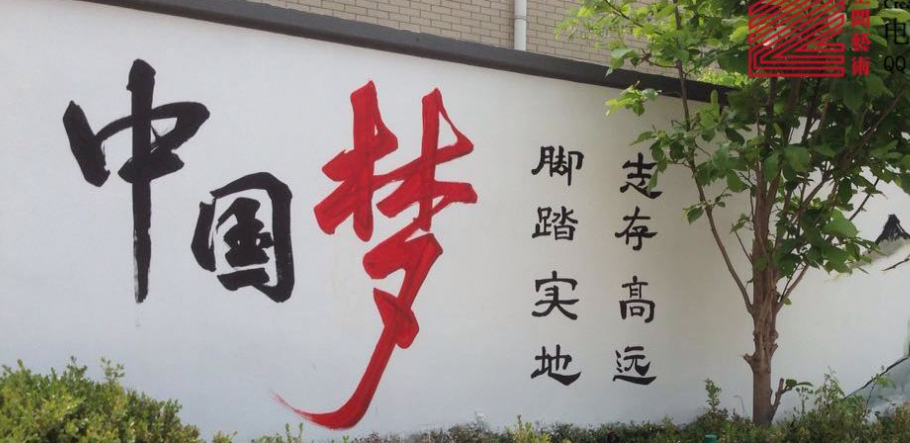 中国梦
志存高远
脚踏实地
艺術
QQ